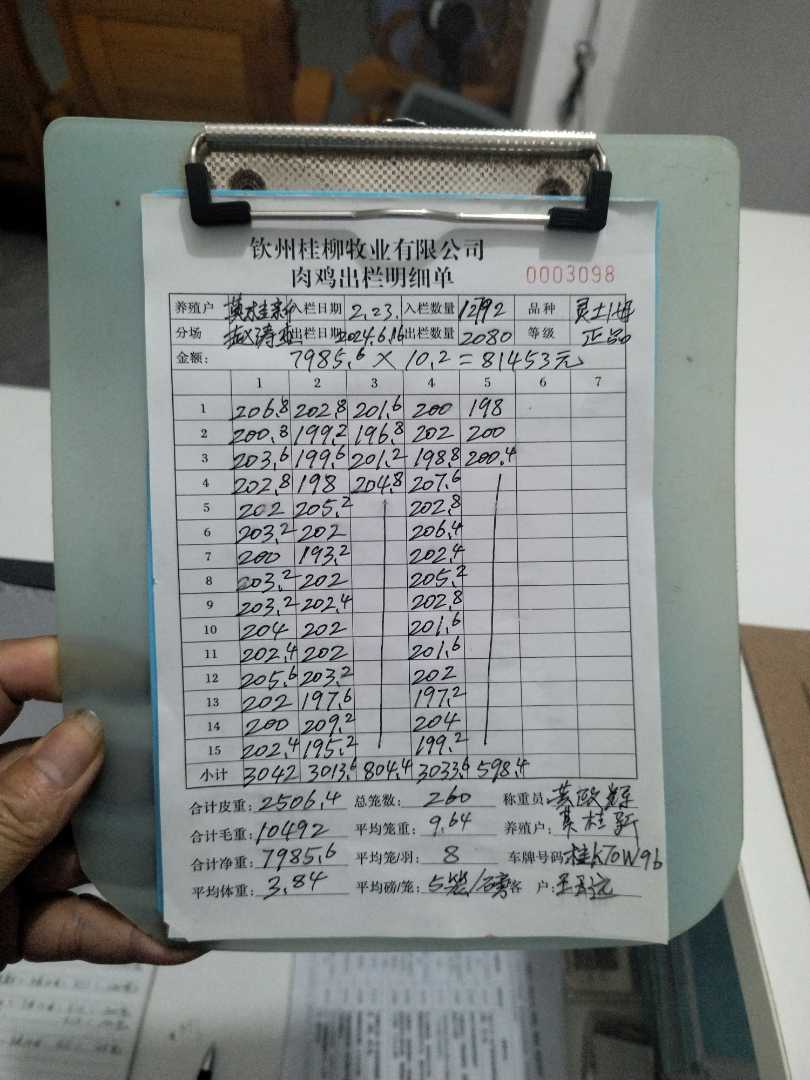 钦州桂柳牧业有限公司
肉鸡出栏明细单 0003098
养殖户 莫桂新 入栏日期 2.23. 入栏数量 12792 品种 灵土1号
分场 出栏日期 2024.6.16 出栏数量 2080 等级 正品
金额: 7985.6 × 10.2 = 81453元
1 2 3 4 5 6 7
1 206.8 202.8 201.6 200 198
2 200.8 199.2 196.8 202 200
3 203.6 199.6 201.2 198.8 200.4
4 202.8 198 204.8 207.6
5 202 205.2 202.8
6 203.2 202 206.4
7 200 193.2 202.4
8 203.2 202 205.2
9 203.2 202.4 202.8
10 204 202 201.6
11 202.4 202 201.6
12 205.6 203.2 202
13 202 197.6 197.2
14 200 209.2 204
15 202.4 195.2 199.2
小计 3042 3013.6 804.4 3033.6 598.4
合计皮重: 2506.4 总笼数: 260 称重员:
合计毛重: 10492 平均笼重: 9.64 养殖户: 莫桂新
合计净重: 7985.6 平均笼/羽: 8 车牌号码 桂K70W96
平均体重: 3.84 平均磅/笼: 5笼/磅 客 户: